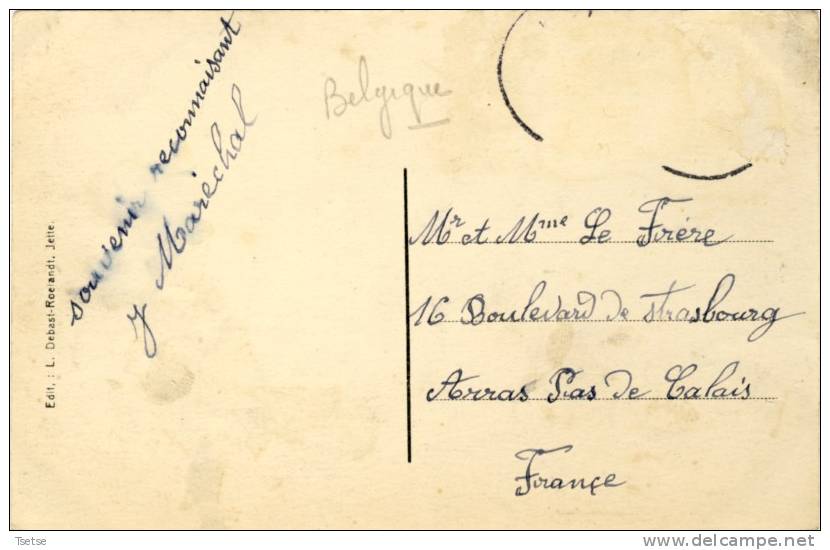 souvenir reconnaisant
J Maréchal
Belgique
Mr et Mme Le Frère
16 Boulevard de Strasbourg
Arras Pas de Calais
France
Edit. : L. Debast-Roelandt, Jette.
Tsetse
delcampe.net